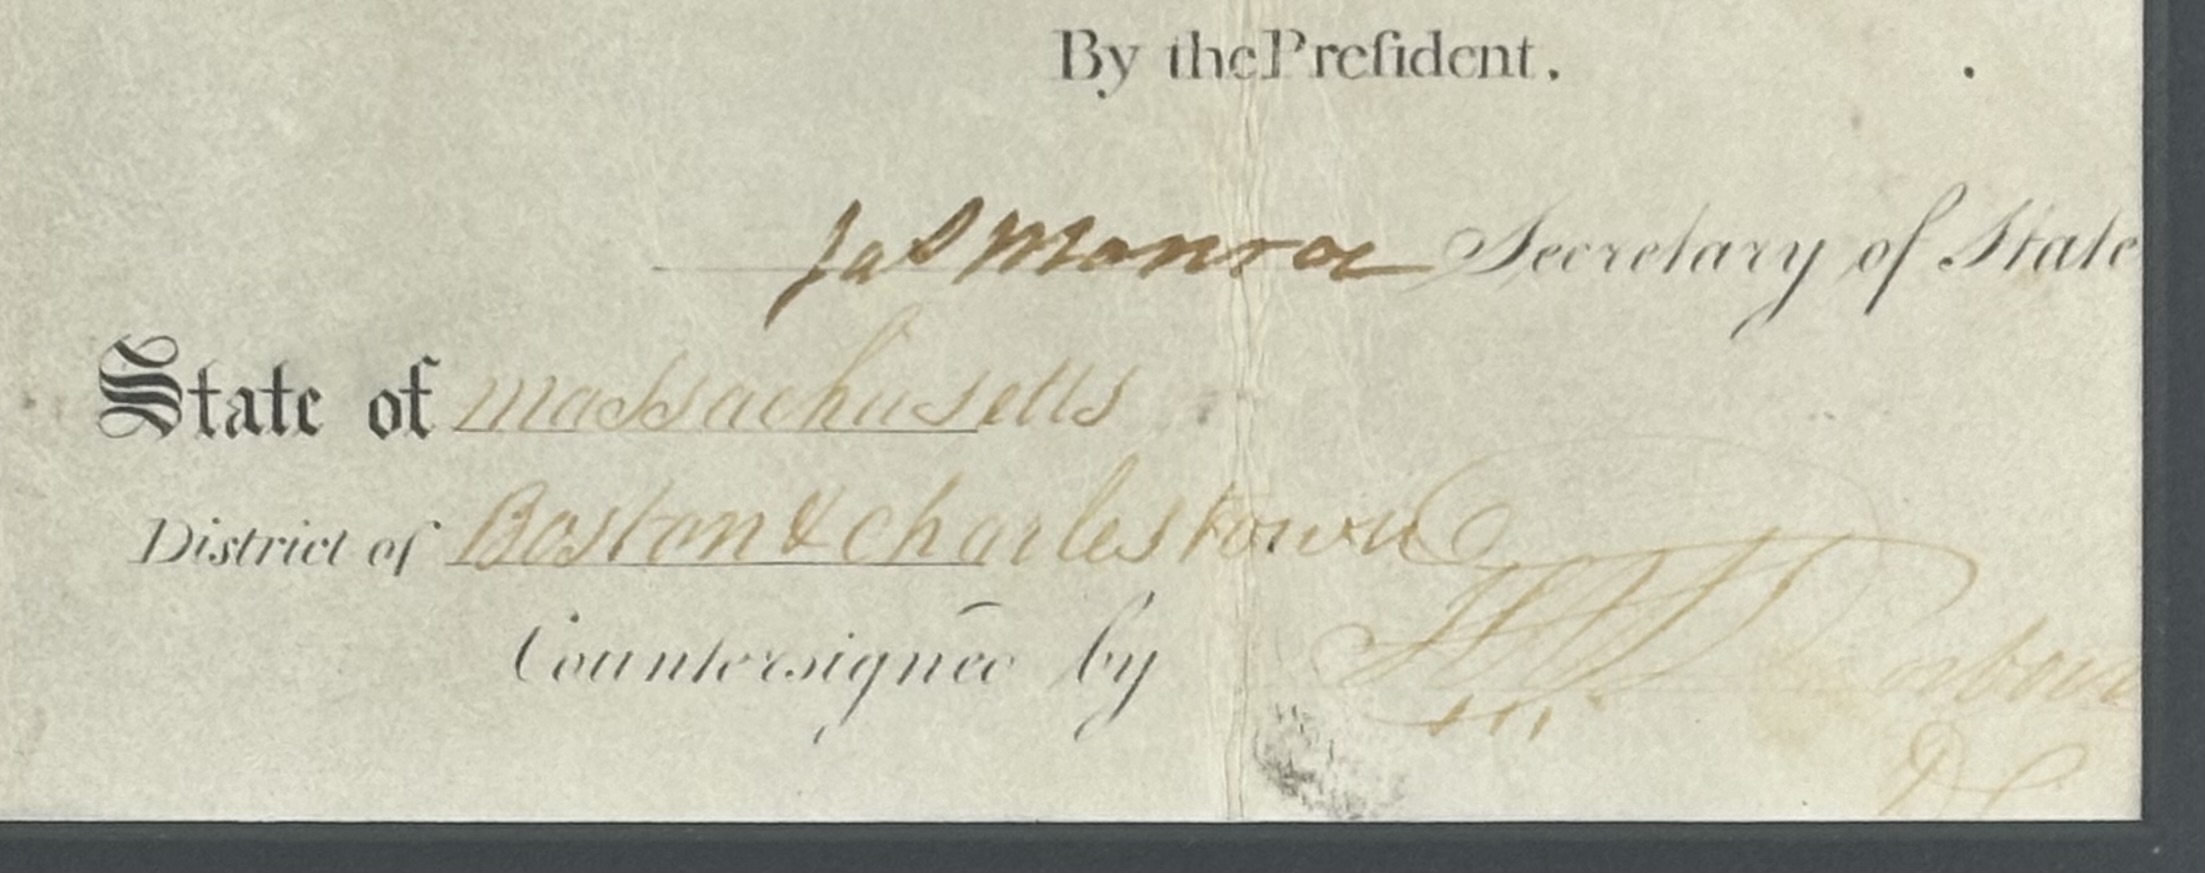 By the Preſident.
Jas Monroe Secretary of State
State of Massachusetts
District of Boston & Charlestown
Countersigned by